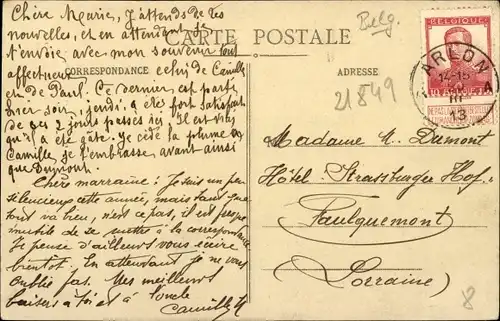 Chère Marie, J'attends de tes
nouvelles, et en attendant je
t'envoie avec mon souvenir tout
affectueux celui de Camille
et de Paul. Ce dernier est parti
hier soir, jeudi, a été fort satisfait
de ces 2 jours passés ici. Il est vrai
qu'il a été gâté. Je cède la plume à
Camille, je t'embrasse avant ainsi
que Dumont.
Chère marraine : Je suis un peu
silencieux cette année, mais tant que
tout va bien, n'est ce pas, il est presque
inutile de se mettre à la correspondance
Je pense d'ailleurs vous écrire
bientôt. En attendant je ne vous
oublie pas. Mes meilleurs
baisers à toi et à l'oncle
Camille
CARTE POSTALE
CORRESPONDANCE
ADRESSE
Belg.
21849
BELGIQUE
ARLON
14-15
III
13
A
Madame N. Dumont
Hôtel Strassburger Hof.
Faulquemont
Lorraine)
8